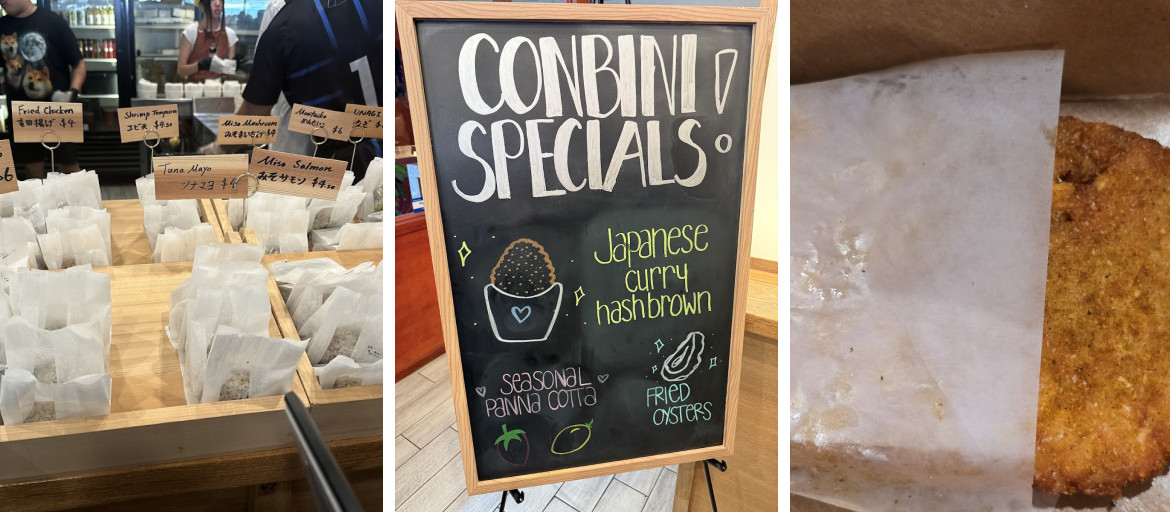 Fried Chicken
竜田揚げ $4
Shrimp Tempura
エビ天 $4.50
Miso Mushroom
みそまいたけ $4
Mentaiko
めんたいこ $6
UNAGI
Tuna Mayo
ツナマヨ $4
Miso Salmon
みそサモン $4.50
CONBINI
SPECIALS!
Japanese
curry
hashbrown
SEASONAL
PANNA COTTA
FRIED
OYSTERS